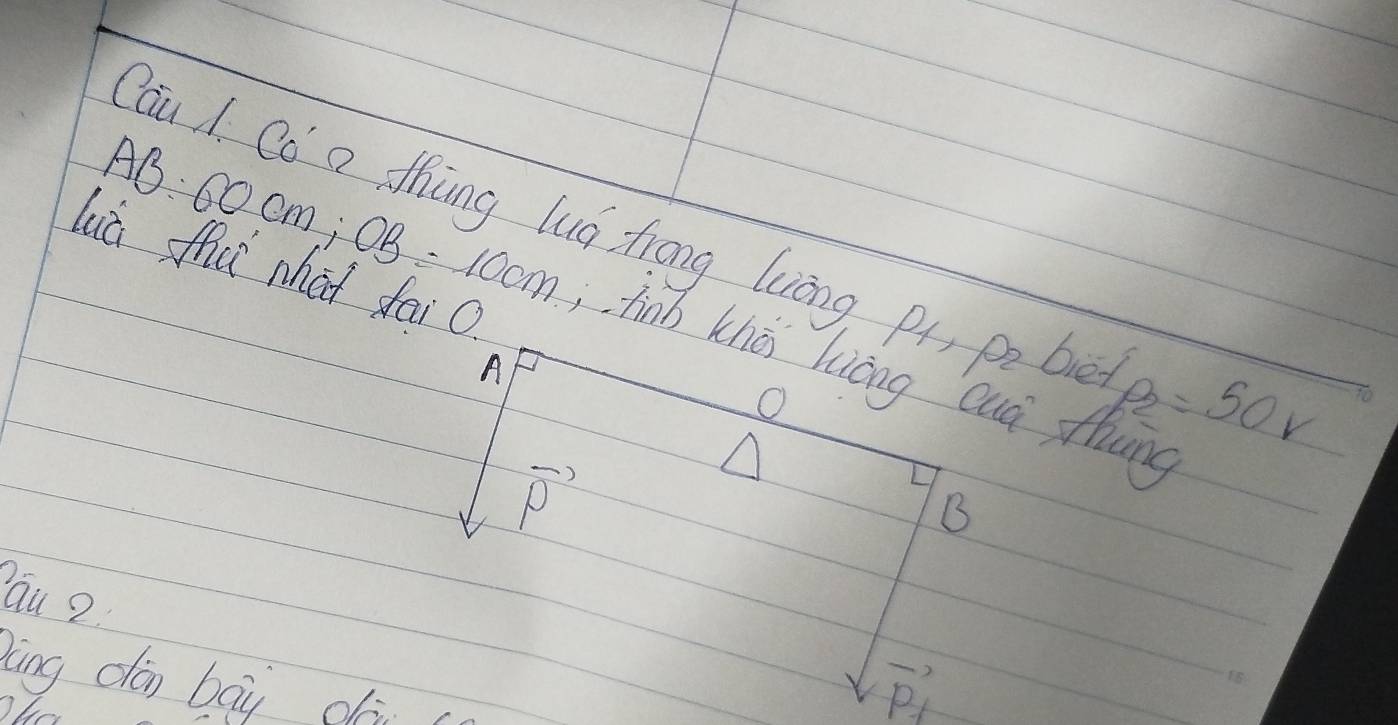 Câu 1. Có 2 thùng lúa trọng lượng P1, P2 biết P2 = 50N
AB: 60 cm; OB = 10cm; tính khối lượng của thùng
lúa thứ nhất tại O.
A
O
B
P
P1
Câu 2.
Dùng đòn bẩy